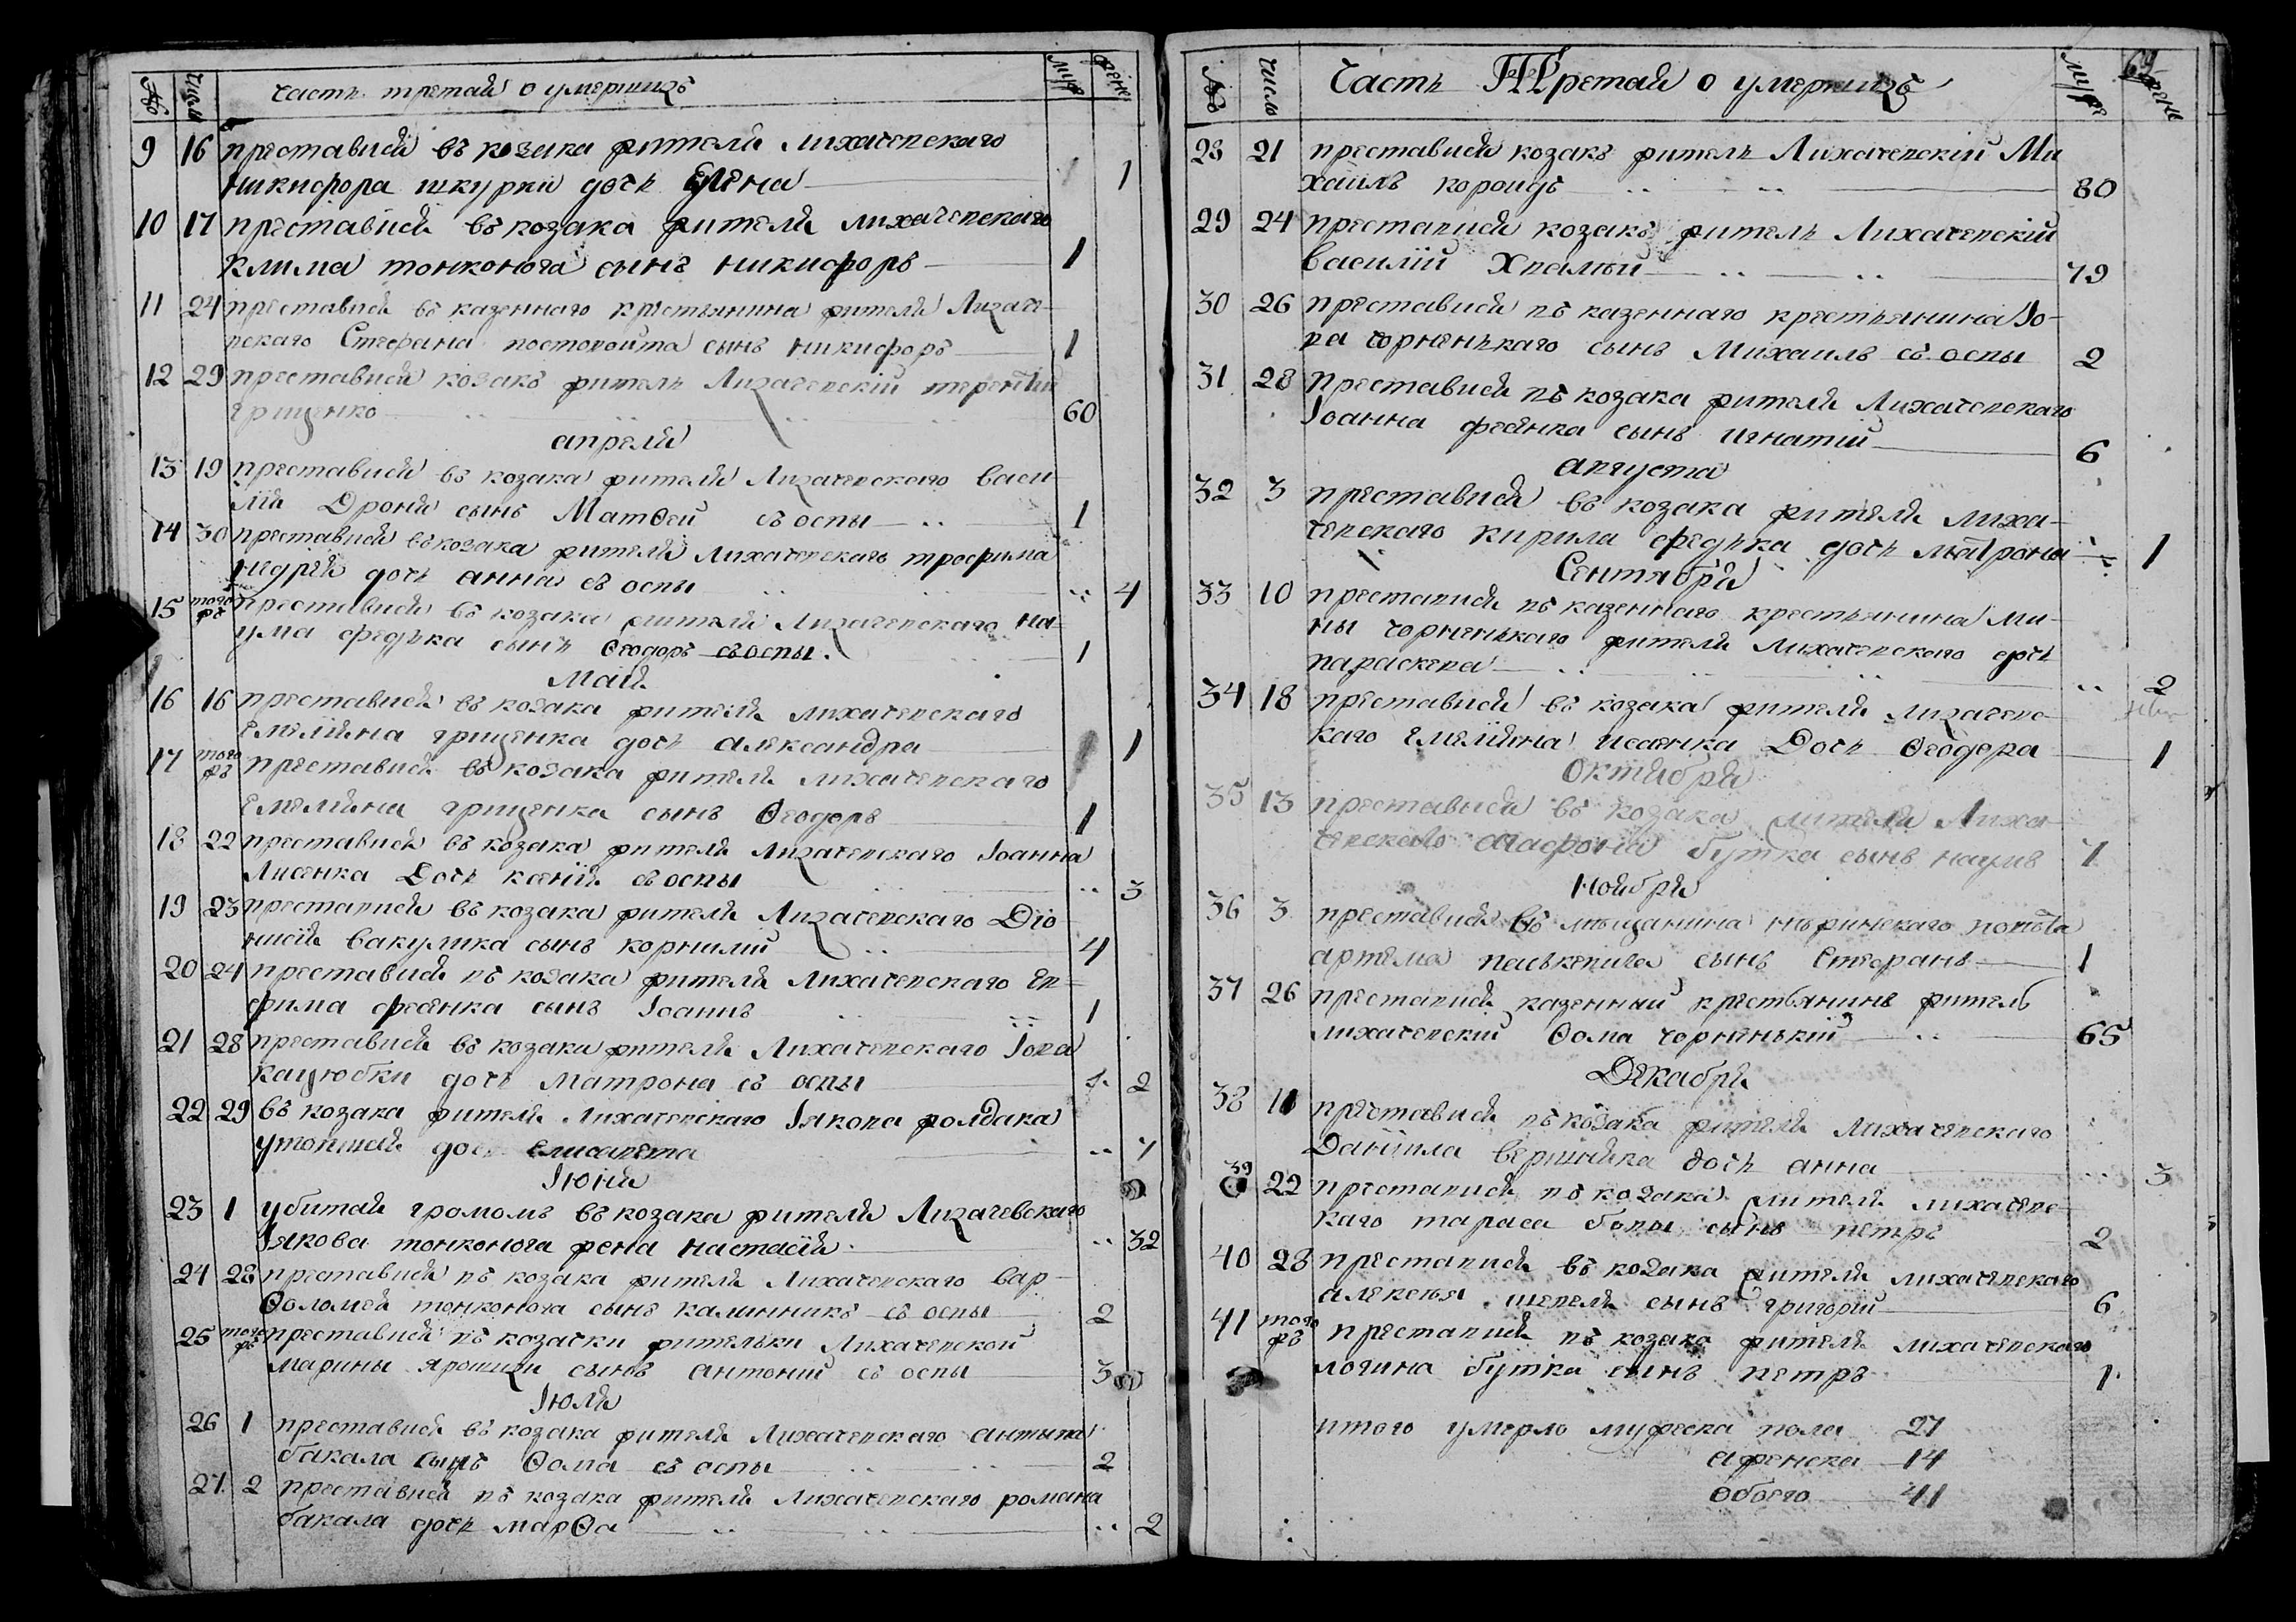 № число часть третая о умершихъ муж женс
9 16 преставися въ козака жителя лихачевскаго
никифора шкурки дочь Елена 1
10 17 преставися въ козака жителя лихачевскаго
клима тонконога сынъ никифоръ 1
11 24 преставися въ казеннаго крестьянина жителя Лихаче-
вскаго Стефана постопойта сынъ никифоръ 1
12 29 преставися козакъ житель Лихачевскій терентій
грищенко 60
апреля
13 19 преставися въ козака жителя Лихачевскаго васи
лія Дроня сынъ Матѳей съ оспы 1
14 30 преставися въ козака жителя Лихачевскаго трофима
дочь анна съ оспы 4
15 того жъ преставися въ козака жителя Лихачевскаго на-
ума федька сынъ Ѳеодоръ съ оспы 1
Мая
16 16 преставися въ козака жителя лихачевскаго
Емелияна грищенка дочь александра 1
17 того жъ преставися въ козака жителя лихачевскаго
Емелияна грищенка сынъ Ѳеодоръ 1
18 22 преставися въ козака жителя Лихачевскаго Іоанна
Лисенка Дочь ксенія съ оспы 3
19 23 преставися въ козака жителя Лихачевскаго Діо
нисія вакулика сынъ корнилий 4
20 24 преставися въ козака жителя Лихачевскаго Ев-
фима фесянка сынъ Іоаннъ 1
21 28 преставися въ козака жителя Лихачевскаго Іова
кацюбки дочь Матрона съ оспы 2
22 29 въ козака жителя Лихачевскаго Іякова
утопшая дочь елисавета 7
Июня
23 1 убитая громомъ въ козака жителя Лихачевскаго
Іякова тонконога жена настасія 32
24 28 преставися въ козака жителя Лихачевскаго вар-
ѳоломея тонконога сынъ калинникъ съ оспы 2
25 того жъ преставися въ козачки жительки Лихачевской
марины ярошихи сынъ антоний съ оспы 3
Июля
26 1 преставися въ козака жителя Лихачевскаго антипа
бакала сынъ Ѳома съ оспы 2
27 2 преставися въ козака жителя Лихачевскаго романа
бакала дочь марѳа 2
№ число Часть Третая о умершихъ муж женс 69
28 21 преставися козакъ житель Лихачевскій Ми
хаилъ короидъ 80
29 24 преставися козакъ житель Лихачевскій
василій Хвамый 79
30 26 преставися въ казеннаго крестьянина Іо-
ва чорненкаго сынъ Михаилъ съ оспы 2
31 28 преставися въ козака жителя Лихачевскаго
Іоанна фесянка сынъ игнатий 6
августа
32 3 преставися въ козака жителя лиха-
чевскаго кирила федька дочь матрона 1
Сентября
33 10 преставися въ казеннаго крестьянина Ми-
ны чорненькаго жителя лихачевскаго дочь
параскева 2
34 18 преставися въ козака жителя лихачевс-
каго Емелияна исаенка Дочь Ѳеодора 1
Октября
35 13 преставися въ козака жителя Лиха
чевскаго агафона бутка сынъ наумъ 7
Ноября
36 3 преставися въ мѣщанина нѣжинскаго повѣта
артема васькевича сынъ Стефанъ 1
37 26 преставися казенный крестьянинъ житель
лихачевский Ѳома чорненький 65
Декабря
38 11 преставися въ козака жителя Лихачевскаго
Даниила вершняка дочь анна 3
39 22 преставися въ козака жителя лихачевс-
каго тараса бовы сынъ петръ 2
40 28 преставися въ козака жителя лихачевскаго
алексея шепеля сынъ григорій 6
41 того жъ преставися въ козака жителя лихачевскаго
логина бутка сынъ петръ 1
итого умерло мужеска пола 27
а женска 14
обоего 41